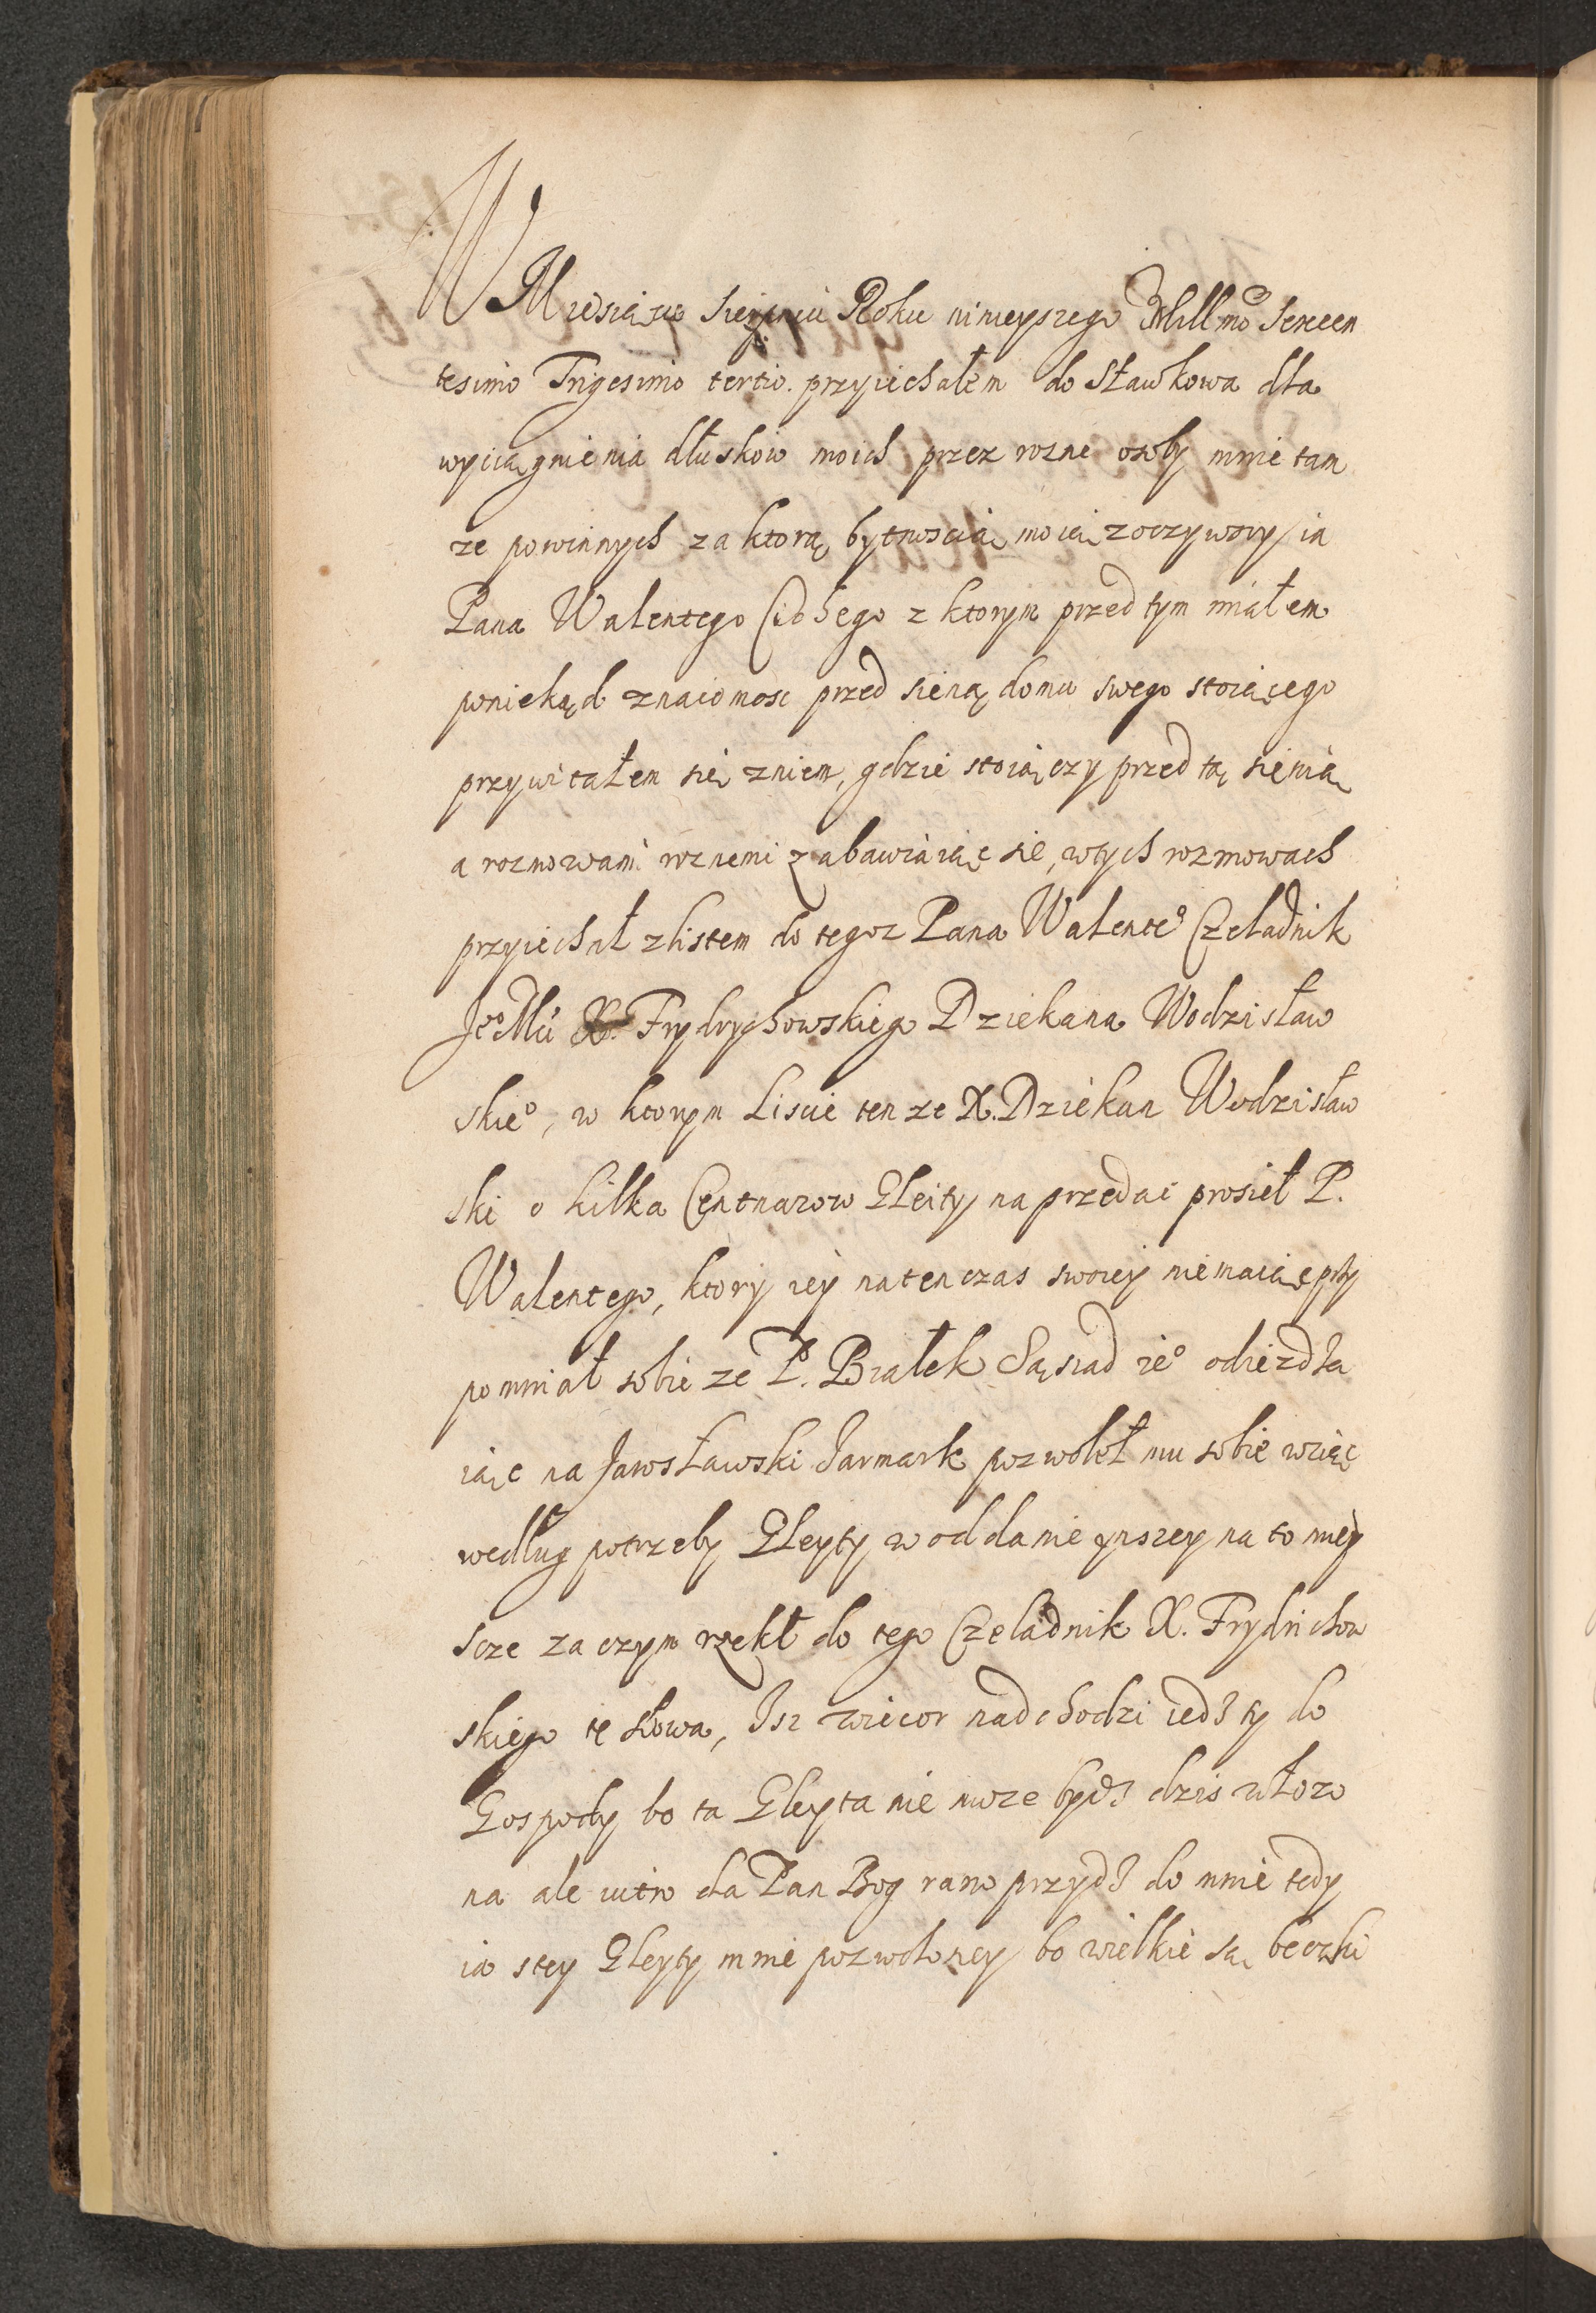 W Miesiącu Sierpniu Roku ninieyszego Millmo Sexcen
tesimo Trigesimo tertio. przyiechałem do Sławkowa dla
wyciągnienia dłuskow moich przez rozne osoby mnie tam
ze powinnych za ktorą bytnoscią moią zoczywszy ia
Pana Walentego Cichego z ktorym przed tym miałem
poniekąd znaiomosc przed sienią domu swego stoiącego
przywitałem się zniem, gdzie stoiączy przed tą sienią
a rozmowami roznemi zabawiaiąc sie, wtych rozmowach
przyiechał zlistem do tegoz Pana Walenteo Czeladnik
Jeo Mci X. Frydrychowskiego Dziekana Wodzisław
skieo, w ktorym Liscie tenze X. Dziekan Wodzisław
ski o kilka Centnarow Gleity na przedai prosieł P.
Walentego, ktory iey natenczas swoiey niemaiąc przy
pomniał sobie ze P. Białek Sąsiad ieo odiezdza
iąc na Jarosławski Jarmark pozwoleł mu sobie wziąc
według potrzeby Gleyty w oddanie ynszey na to miey
scze za czym rzekł do tego Czeladnik X. Frydrichow
skiego te słowa, Isz wieczor nadchodzi iedz ty do
Gospody bo ta Gleyta nie moze bydz dzis włozo
na ale iutro da Pan Bog rano przydz do mnie tedy
ia stey Gleyty mnie pozwoloney bo wielkie są beczki